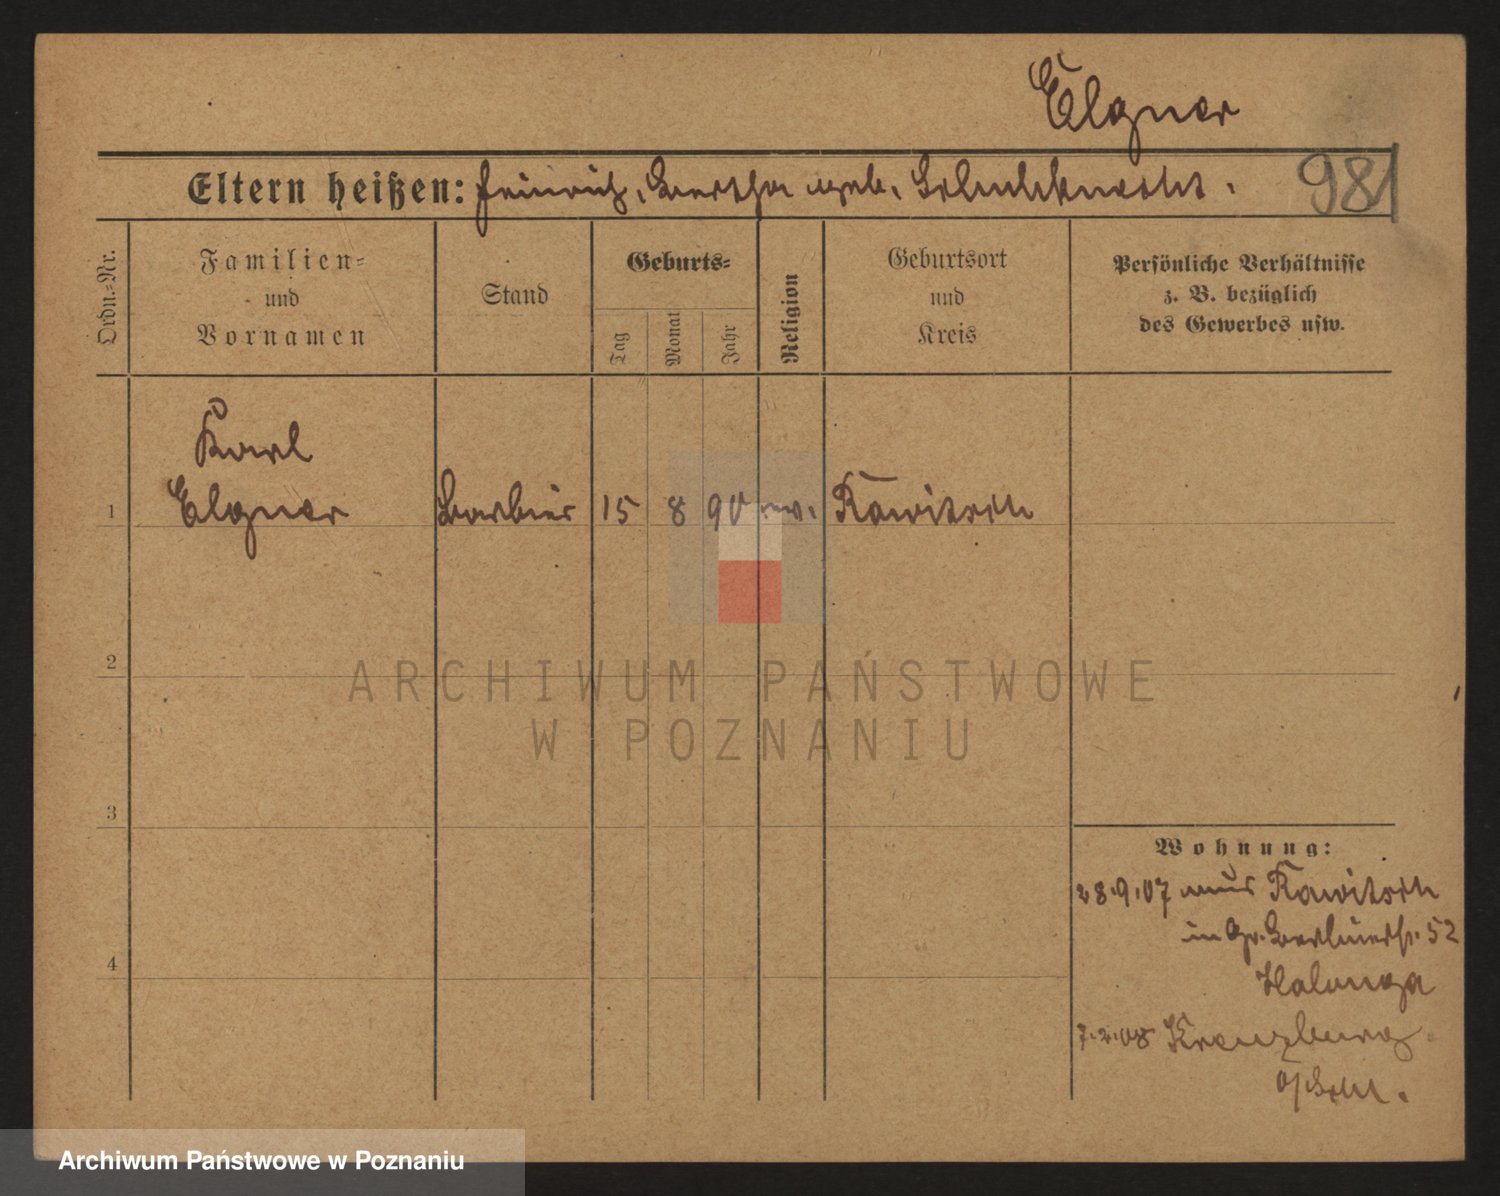 Elgner
Eltern heißen: Heinrich, Bertha geb. 981
Ordn.=Nr.
Familien=
und
Vornamen
Stand
Geburts=
Tag
Monat
Jahr
Religion
Geburtsort
und
Kreis
Persönliche Verhältnisse
z. B. bezüglich
des Gewerbes usw.
Karl
1 Elgner Barbier 15 8 90 ev. Rawitsch
2
3
4
Wohnung:
28.9.07 aus Rawitsch
in Gr. Berlinerstr. 52
7.2.08 Kreuzburg
O/Schl.
ARCHIWUM PAŃSTWOWE
W POZNANIU
Archiwum Państwowe w Poznaniu